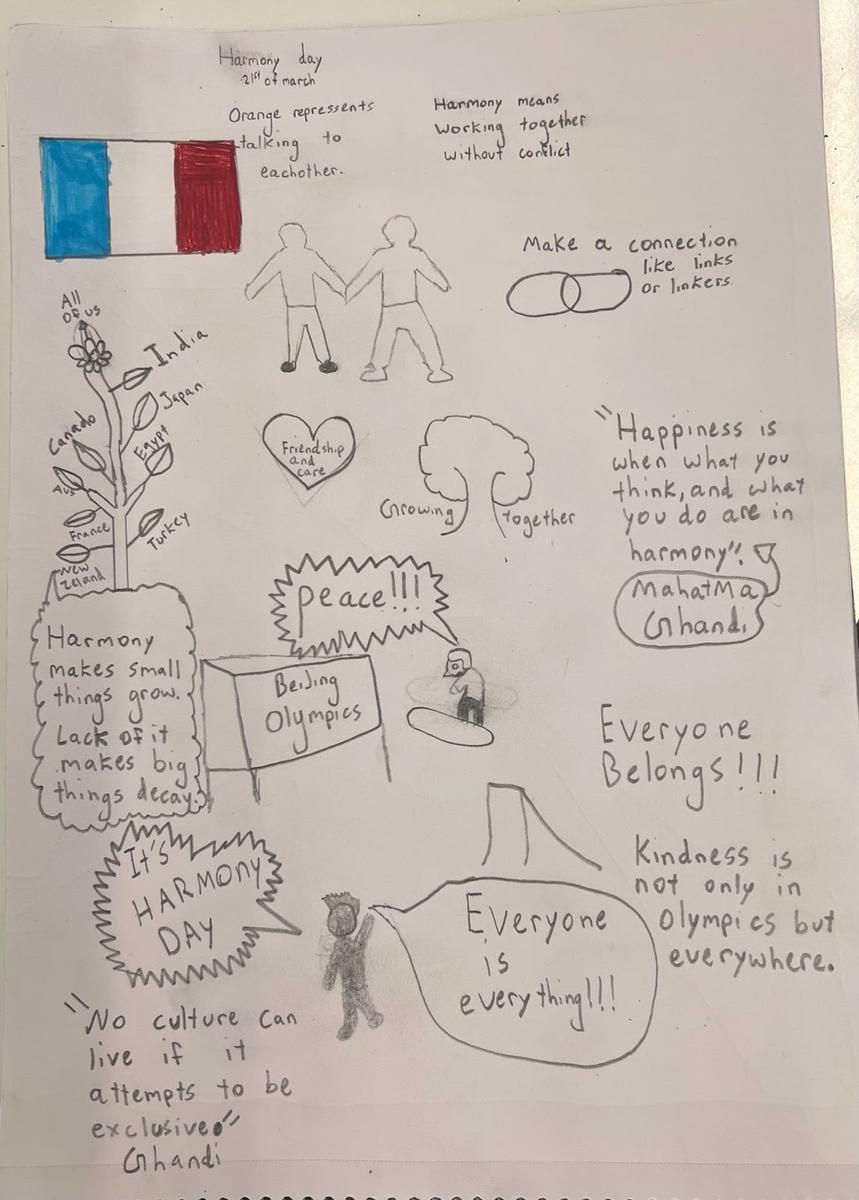 Harmony day
21st of march
Orange repressents
talking to
eachother.
Harmony means
working together
without conflict
Make a connection
like links
or linkers.
All
of us
India
Japan
Canado
Egypt
Aus
France
Turkey
New
Zeland
Friendship
and
care
Growing together
"Happiness is
when what you
think, and what
you do are in
harmony".
Mahatma
Ghandi
peace!!!
Harmony
makes small
things grow.
Lack of it
makes big
things decay.
Beijing
Olympics
Everyone
Belongs!!!
It's
HARMONY
DAY
Everyone
is
everything!!!
Kindness is
not only in
Olympics but
everywhere.
"No culture can
live if it
attempts to be
exclusive."
Ghandi